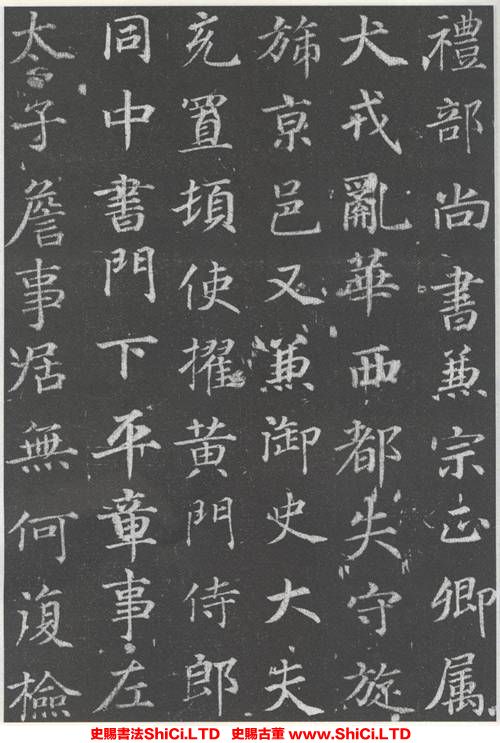 禮部尚書兼宗正卿属
犬戎亂華西都失守旋
旆亰邑又兼御史大夫
充置頓使擢黄門侍郎
同中書門下平章事左
太子詹事居無何復檢
史賜書法ShiCi.LTD 史賜古董 www.ShiCi.LTD